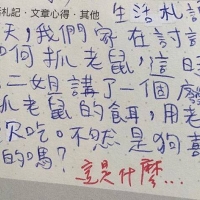 活札記・文章心得・其他
生活札記
天，我們家在討論
如何抓老鼠，這時
二姐講了一個
抓老鼠的餌，用老
次吃。不然是狗
的嗎？
這是什麼…